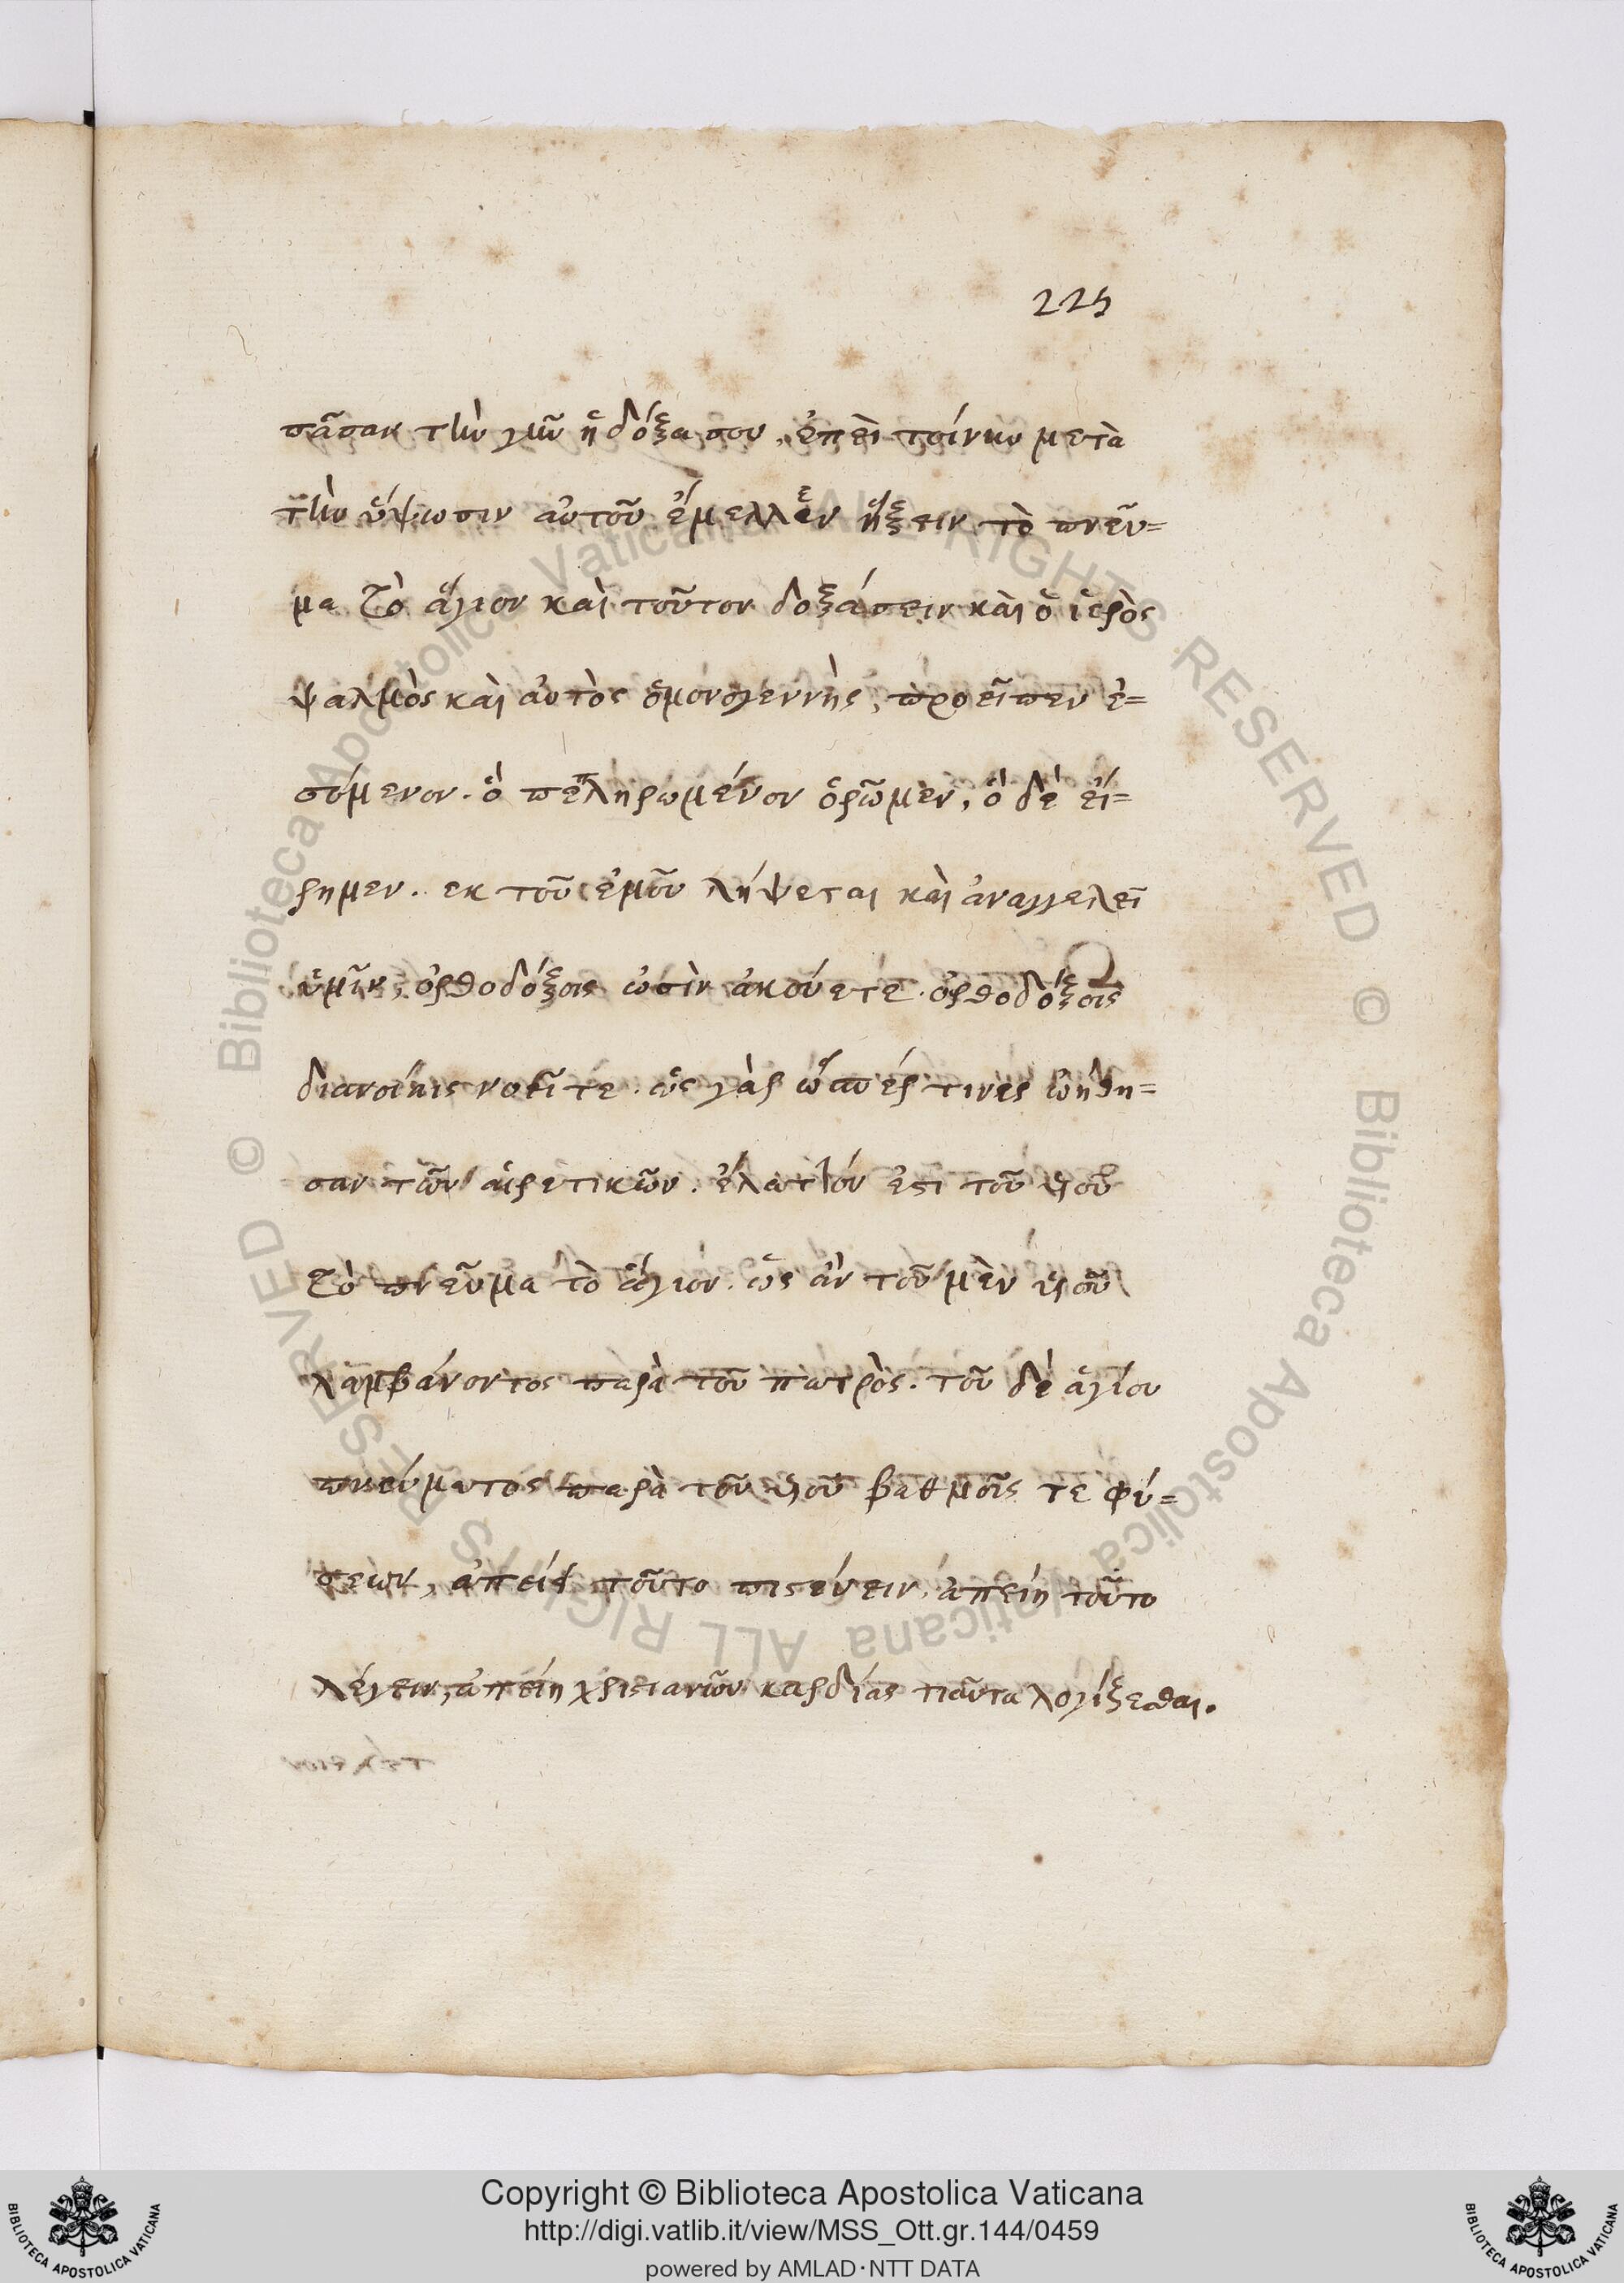 225
πᾶσαν τὴν γῆν ἡ δόξα σου, ἐπεὶ τοίνυν μετὰ
τὴν ὕψωσιν αὐτοῦ ἔμελλεν ἥξειν τὸ πνεῦ=
μα τὸ ἅγιον καὶ τοῦτον δοξάσειν καὶ ὁ ἱερὸς
ψαλμὸς καὶ αὐτὸς ὁμονογεννὴς, προεῖπεν ἐ=
σόμενον. ὃ πεπληρωμένον ὁρῶμεν, ὃ δὲ εἴ=
ρημεν. εκ τοῦ ἐμοῦ λήψεται καὶ ἀναγγειλεῖ
ὑμῖν, ὀρθοδόξοις ὠσὶν ἀκούετε. ὀρθοδόξοις
διανοίηις νοεῖτε. ὡς γὰρ ὥσπέρ τινες ὠήθη=
σαν τῶν αἱρετικῶν. ἔλαττόν ἐστι τοῦ υἱοῦ
τὸ πνεῦμα τὸ ἅγιον. ὡς ἂν τοῦ μὲν υἱοῦ
λαμβάνοντος παρὰ τοῦ πατρὸς. τοῦ δὲ ἁγίου
πνεύματος παρὰ τοῦ υἱοῦ βαθμοῖς τε φύ=
σεων, ἀπείη τοῦτο πιστεύειν, ἀπείη τοῦτο
λέγειν, ἀπείη χριστιανῶν καρδίας τιαῦτα λογίξεσθαι.
Copyright © Biblioteca Apostolica Vaticana
http://digi.vatlib.it/view/MSS_Ott.gr.144/0459
powered by AMLAD·NTT DATA
© Biblioteca Apostolica Vaticana ALL RIGHTS RESERVED © Biblioteca Apostolica Vaticana ALL RIGHTS RESERVED
BIBLIOTECA APOSTOLICA VATICANA
BIBLIOTECA APOSTOLICA VATICANA